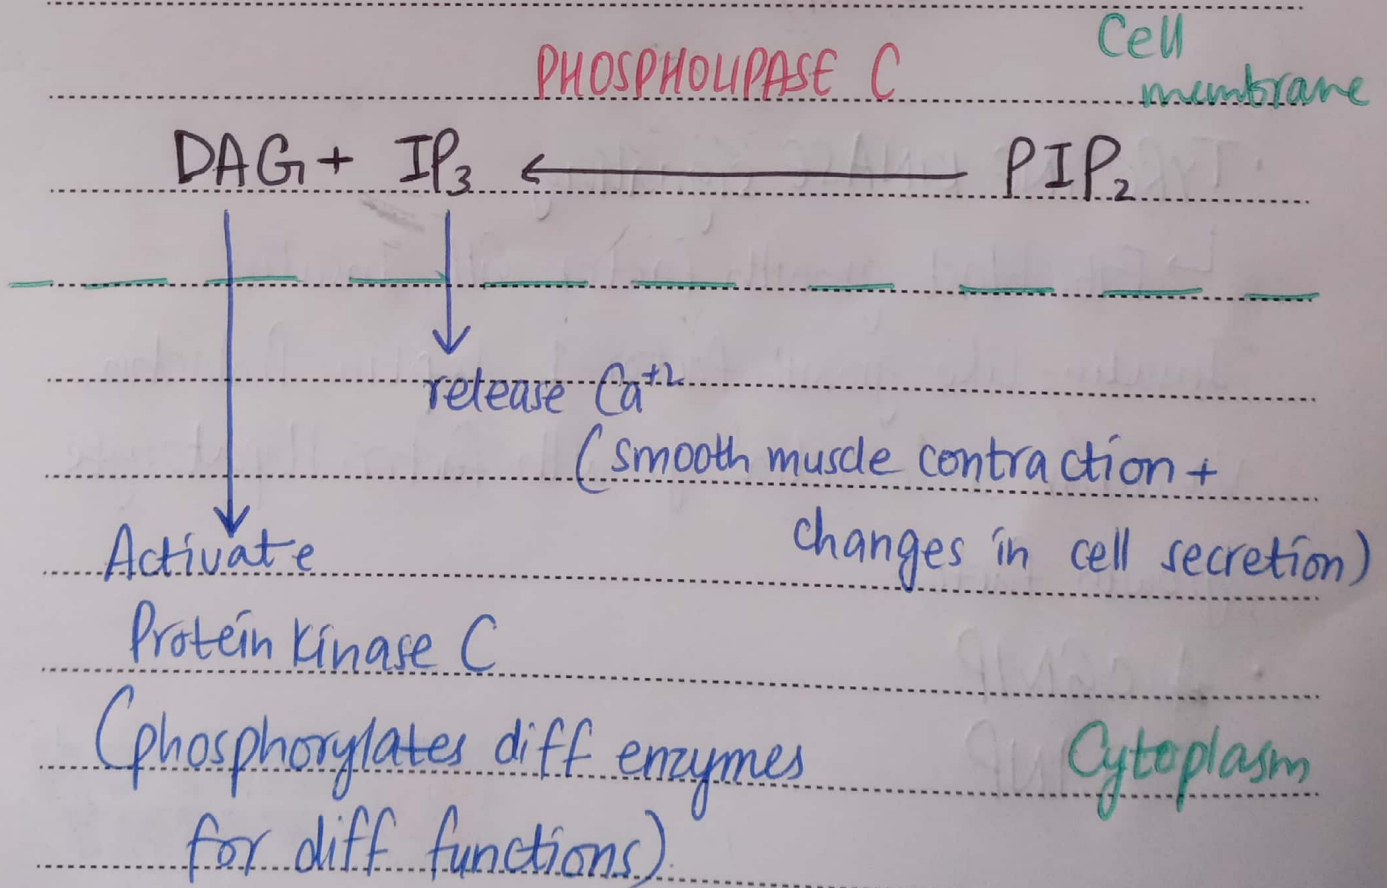 Cell
membrane
PHOSPHOLIPASE C
DAG + IP₃ ← PIP₂
release Ca⁺²
(smooth muscle contraction +
changes in cell secretion)
Activate
Protein Kinase C
(phosphorylates diff enzymes
for diff functions).
Cytoplasm